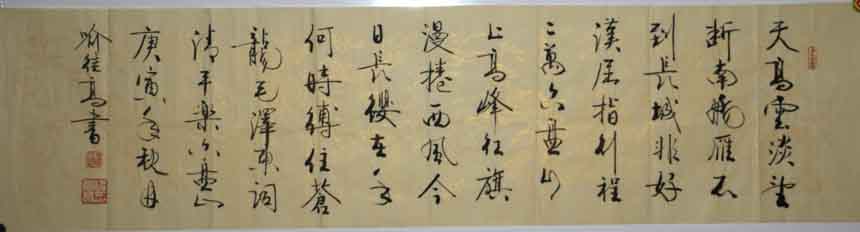 天高雲淡望
断南飛雁不
到長城非好
漢屈指行程
二萬六盘山
上高峰红旗
漫捲西風今
日長纓在手
何時縛住蒼
龍毛澤东詞
清平樂六盘山
庚寅年秋月
高書